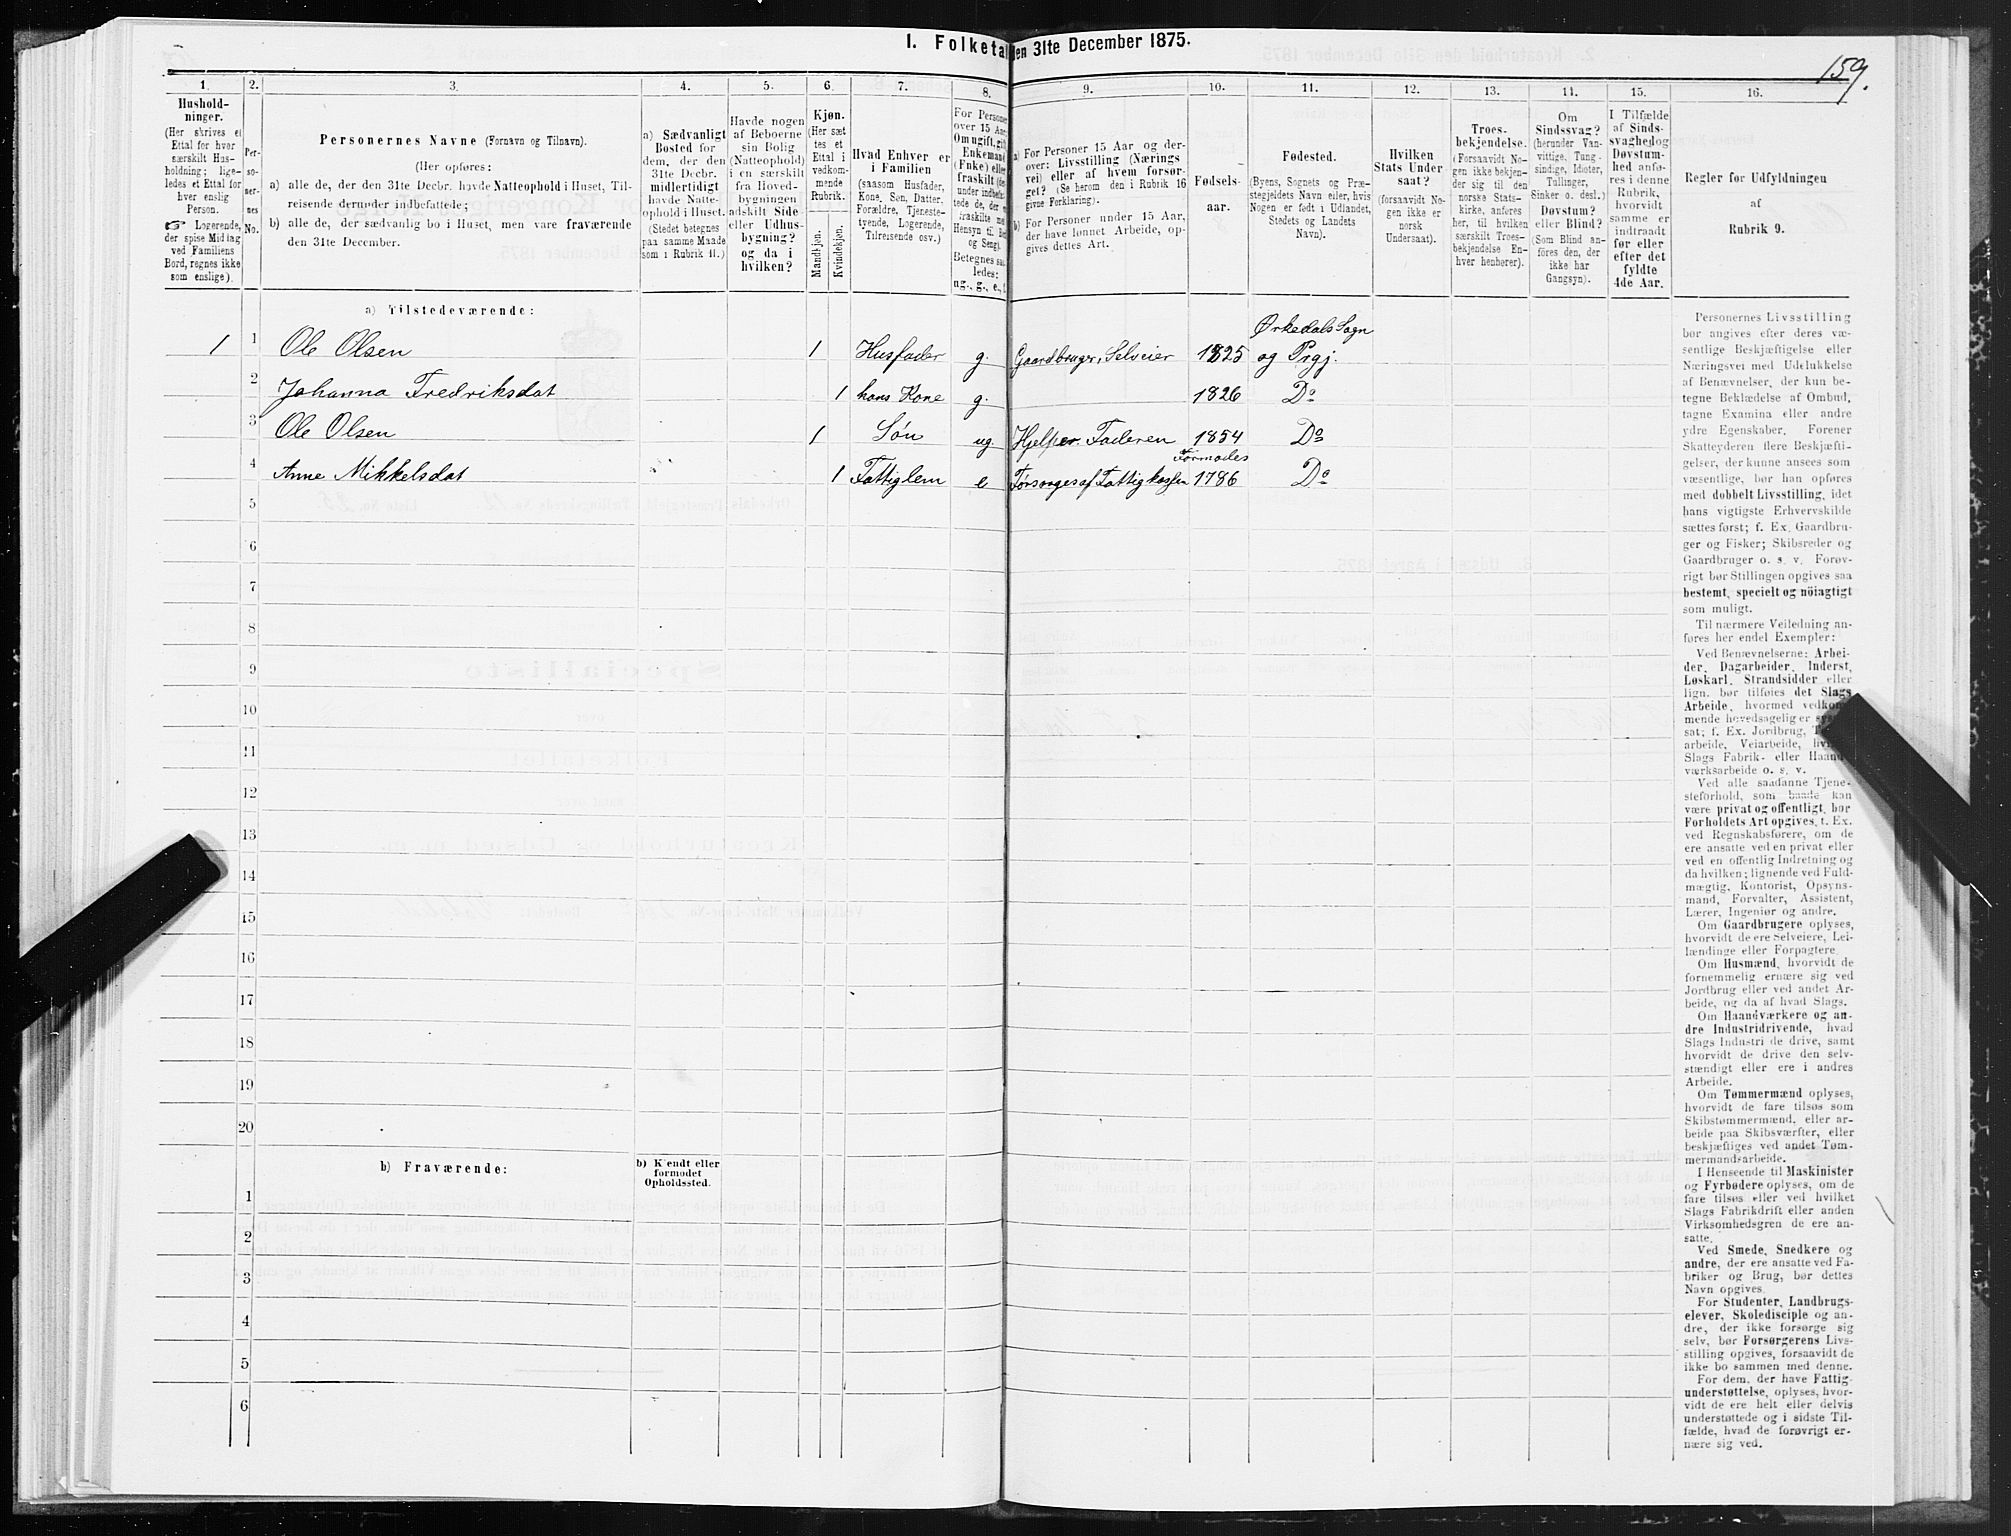 159.
I. Folketal den 31te December 1875.
1.
2.
3.
4.
5.
6.
7.
8.
9.
10.
11.
12.
13.
11.
15.
16.
Hushold-
ninger.
(Her skrives et
Ettal for hver
særskilt Hus-
holdning; lige-
ledes et Ettal for
hver enslig
Person.
Logerende,
der spise Middag
ved Familiens
Bord, regnes ikke
som enslige).
Per-
so-
ner-
nes
No.
Personernes Navne (Fornavn og Tilnavn).
(Her opføres:
a) alle de, der den 31te Decbr. havde Natteophold i Huset, Til-
reisende derunder indbefattede;
b) alle de, der sædvanlig bo i Huset, men vare fraværende
den 31te December.
a) Sædvanligt
Bosted for
dem, der den
31te Decbr.
midlertidigt
havde Natte-
ophold i Huset.
(Stedet betegnes
paa samme Maade
som i Rubrik 11.)
Havde nogen
af Beboerne
sin Bolig
(Natteophold)
i en særskilt
fra Hoved-
bygningen
adskilt Side
eller Udhus-
bygning?
og da i
hvilken?
Kjøn.
(Her sæt-
tes et
Ettal i
vedkom-
mende
Rubrik.
Mandkjøn.
Kvindekjøn.
Hvad Enhver er
i Familien
(saasom Husfader,
Kone, Søn, Datter,
Forældre, Tjeneste-
tyende, Logerende,
Tilreisende osv.)
For Personer
over 15 Aar:
Om ugift, gift,
Enkemand
(Enke) eller
fraskilt
Betegnes saa-
ledes:
ug., g., e., f.
a) For Personer 15 Aar og der-
over: Livsstilling (Nærings
vei) eller af hvem forsør-
get? (Se herom den i Rubrik 16
givne Forklaring).
b) For Personer under 15 Aar,
der have lønnet Arbeide, op-
gives dettes Art.
Fødsels-
aar.
Fødested.
(Byens, Sognets og Præ-
stegjeldets Navn eller, hvis
Nogen er født i Udlandet,
Stedets og Landets
Navn).
Hvilken
Stats Under
saat?
(forsaavidt No-
gen ikke er
norsk
Undersaat).
Troes-
bekjendelse.
(Forsaavidt No-
gen ikke bekjen-
der sig til den
norske Stats-
kirke, anføres
her, til hvilken
særskilt Troes-
bekjendelse En-
hver henhører).
Om
Sindssvag?
(herunder Van-
vittige, Tung-
sindige, Idioter,
Tullinger,
Sinker o. desl.)
Døvstum?
eller Blind?
(Som Blind an-
føres den, der
ikke har
Gangsyn).
I Tilfælde
af Sinds-
svaghed og
Døvstum-
hed anfø-
res i denne
Rubrik,
hvorvidt
samme er
indtraadt
før eller
efter det
fyldte
4de Aar.
Regler for Udfyldningen
af
Rubrik 9.
a) Tilstedeværende:
1 1 Ole Olsen 1 Husfader g. Gaardbruger, Selveier 1825 Ørkedals Sogn og Prgj.
2 Johanna Fredriksdat 1 hans Kone g. 1826 Do
3 Ole Olsen 1 Søn ug. Hjelper Faderen 1854 Do
4 Anne Mikkelsdat 1 Fattiglem e Forsørges af Fattigkassen Formodes 1786 Do
5
6
7
8
9
10
11
12
13
14
15
16
17
18
19
20
b) Fraværende:
b) Kjendt eller
formodet
Opholdssted.
1
2
3
4
5
6
Personernes Livsstilling
bør angives efter deres væ-
sentlige Beskjæftigelse eller
Næringsvei med Udelukkelse
af Benævnelser, der kun be-
tegne Beklædelse af Ombud,
tagne Examina eller andre
ydre Egenskaber. Forener
Skatteyderen flere Beskjæfti-
gelser, der kunne ansees som
væsentlige, bør han opføres
med dobbelt Livsstilling, idet
hans vigtigste Erhvervskilde
sættes først; f. Ex. Gaardbru-
ger og Fisker; Skibsreder og
Gaardbruger o. s. v. Forøv-
rigt bør Stillingen opgives saa
bestemt, specielt og nöiagtigt
som muligt.
Til nærmere Veiledning an-
føres her endel Exempler:
Ved Benævnelserne: Arbei-
der, Dagarbeider, Inderst,
Løskarl, Strandsidder eller
lign. bør tilføies det Slags
Arbeide, hvormed vedkom-
mende hovedsagelig er syssel-
sat; f. Ex. Jordbrug,
arbeide, Veiarbeide,
Slags Fabrik- eller Haand-
værksarbeide o. s. v.
Ved alle saadanne Tjene-
steforhold, som baade kan
være privat og offentligt, bør
Forholdets Art opgives, f. Ex.
ved Regnskabsførere, om de
ere ansatte ved en privat eller
ved en offentlig Indretning og
da hvilken; lignende ved Fuld-
mægtig, Kontorist, Opsyns-
mand, Forvalter, Assistent,
Lærer, Ingeniør og andre.
Om Gaardbrugere oplyses,
hvorvidt de ere Selveiere, Lei-
lændinge eller Forpagtere.
Om Husmænd, hvorvidt de
fornemmelig ernære sig ved
Jordbrug eller ved andet Ar-
beide, og da af hvad Slags.
Om Haandværkere og an-
dre Industridrivende, hvad
Slags Industri de drive, samt
hvorvidt de drive den selv-
stændigt eller ere i andres
Arbeide.
Om Tømmermænd oplyses,
hvorvidt de fare tilsøs som
Skibstømmermænd, eller ar-
beide paa Skibsværfter, eller
beskjæftiges ved andet Tøm-
mermandsarbeide.
I Henseende til Maskinister
og Fyrbødere oplyses, om de
fare tilsøs eller ved hvilket
Slags Fabrikdrift eller anden
Virksomhedsgren de ere an-
satte.
Ved Smede, Snedkere og
andre, der ere ansatte ved Fa-
briker og Brug, bør dettes
Navn opgives.
For Studenter, Landbrugs-
elever, Skoledisciple og an-
dre, der ikke forsørge sig
selv, bør Forsørgerens Livs-
stilling opgives, forsaavidt de
ikke bo sammen med denne.
For dem, der have Fattig-
understøttelse, oplyses, hvor-
vidt de ere helt eller delvis
understøttede og i sidste Til-
fælde, hvad de forøvrigt er-
nære sig ved.